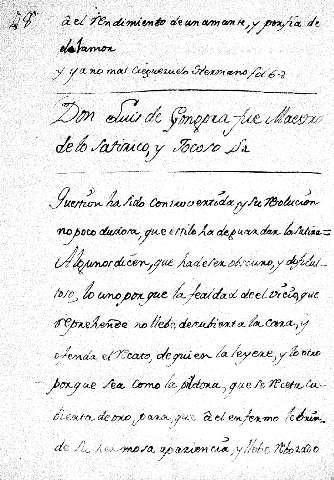 48
del rendimiento de un amante, y porfia de
el amor
y ya no mal Cieguezuelo Hermano fol 62
Don Luis de Gongora fue Maestro
de lo Satirico, y Jocoso
Question ha sido controvertida, y su resolucion
no poco dudosa, que estilo ha de guardar la satira =
Algunos dicen, que ha de ser obscuro, y dificul-
toso, lo uno porque la fealdad de el vicio, que
reprehende no llebe descubierta la cara, y
ofenda el recato, de quien la leyere, y lo otro
porque sea como la pildora, que se receta cu-
bierta de oro, para, que al enfermo le brin-
de su hermosa apariencia, y llebe rebozado